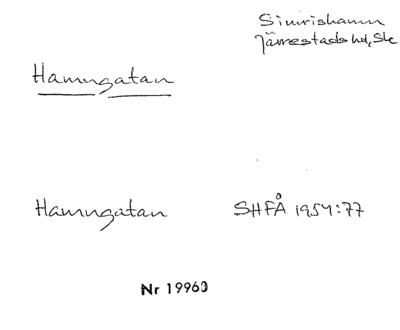 Simrishamn
Järrestads hd, Sk
Hamngatan
Hamngatan SHFÅ 1954:77
Nr 19960